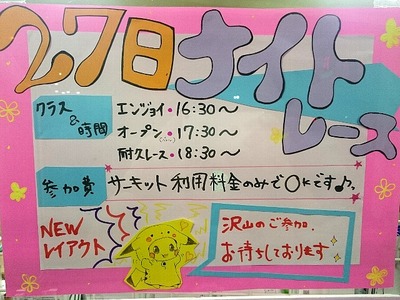 27日ナイト
レース
クラス
&時間
エンジョイ・16:30〜
オープン・17:30〜
耐久レース・18:30〜
参加費
サーキット利用料金のみでOKです♪
NEW
レイアウト
沢山のご参加
お待ちしております